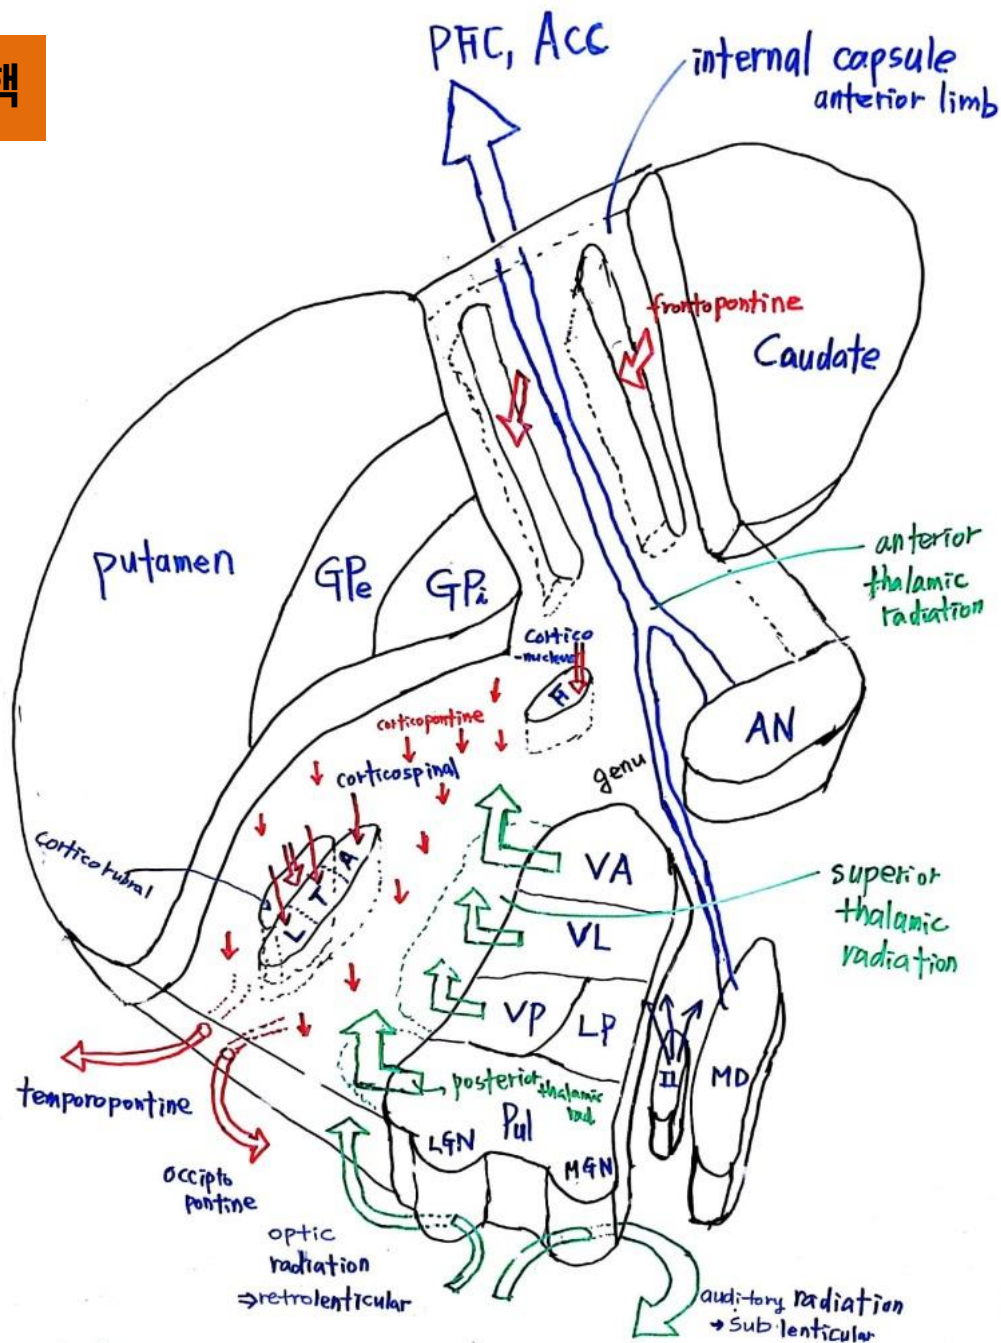 PFC, ACC
internal capsule
anterior limb
frontopontine
Caudate
putamen
GPe
GPi
anterior
thalamic
radiation
cortico
-nuclear
F
AN
corticopontine
genu
corticospinal
VA
corticorubral
A
T
L
superior
thalamic
radiation
VL
VP
LP
IL
MD
posterior thalamic
rad.
temporopontine
Pul
LGN
MGN
occipto
pontine
optic
radiation
⇒retrolenticular
auditory radiation
→ sublenticular